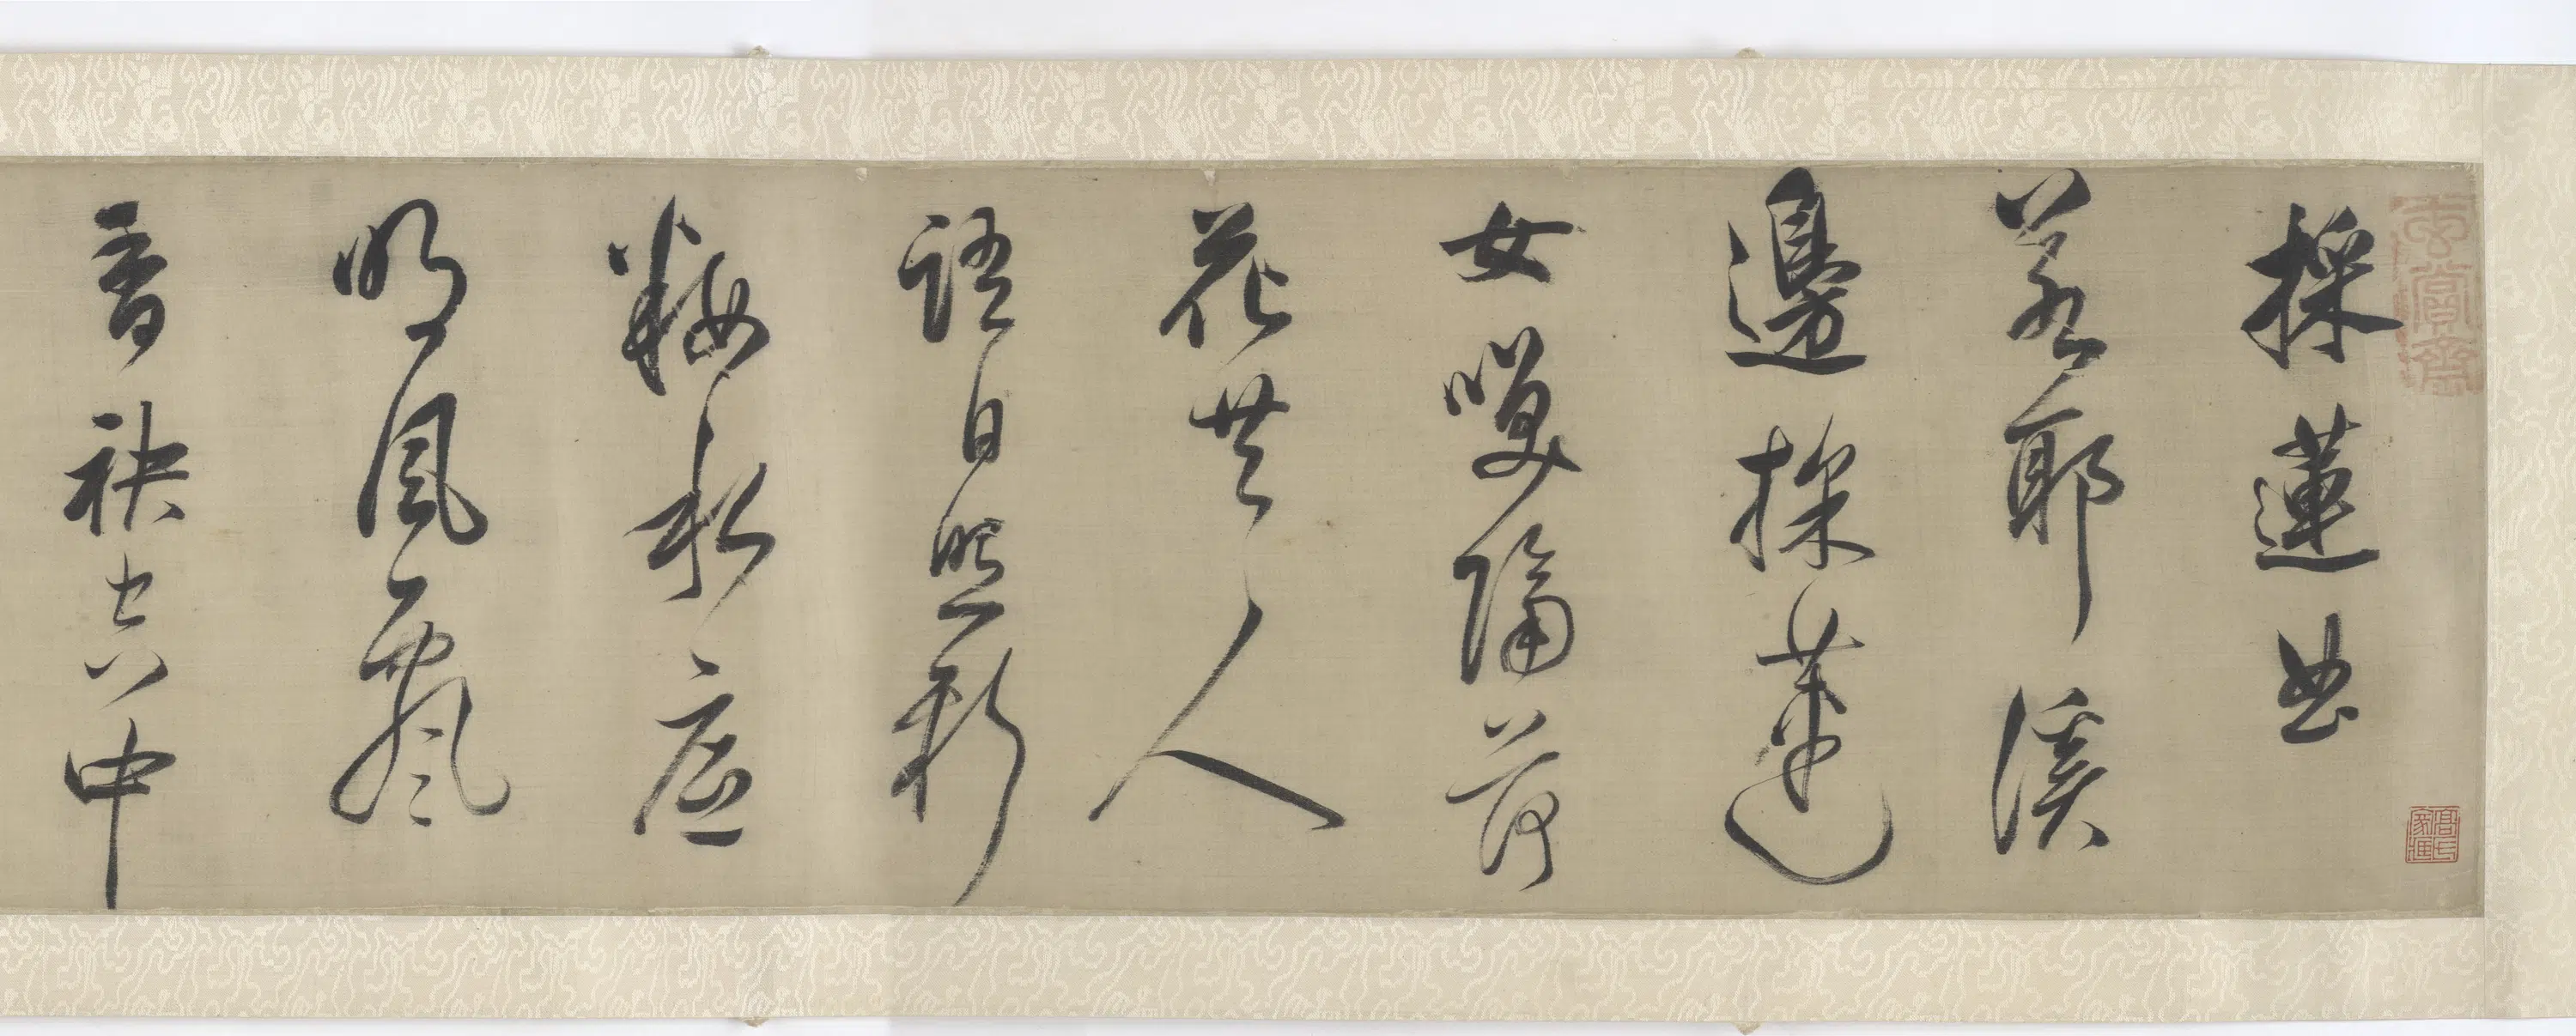 玄賞齋
採蓮曲
若耶溪
邊採蓮
女笑隔荷
花共人
語日照新
粧水底
明風飄
香袂空中